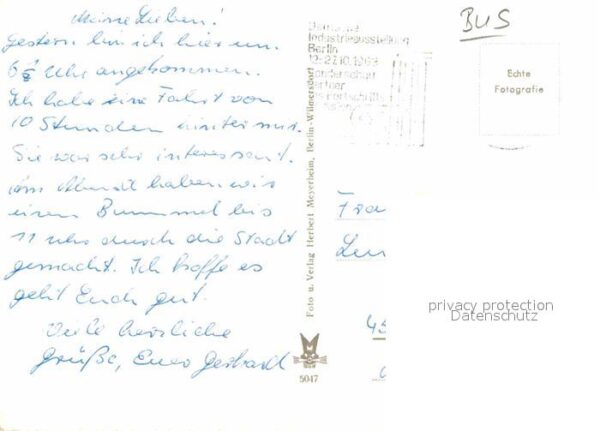 Meine Lieben!
Gestern bin ich hier um
6 ½ Uhr angekommen.
Ich habe eine Fahrt von
10 Stunden hinter mir.
Sie war sehr interessant.
Am Abend haben wir
einen Bummel bis
11 Uhr durch die Stadt
gemacht. Ich hoffe es
geht Euch gut.
Viele herzliche
Grüße, Euer Gerhard
Foto u. Verlag Herbert Meyerheim, Berlin-Wilmersdorf
5047
BUS
Industrieausstellung
Berlin
Echte
Fotografie
privacy protection
Datenschutz